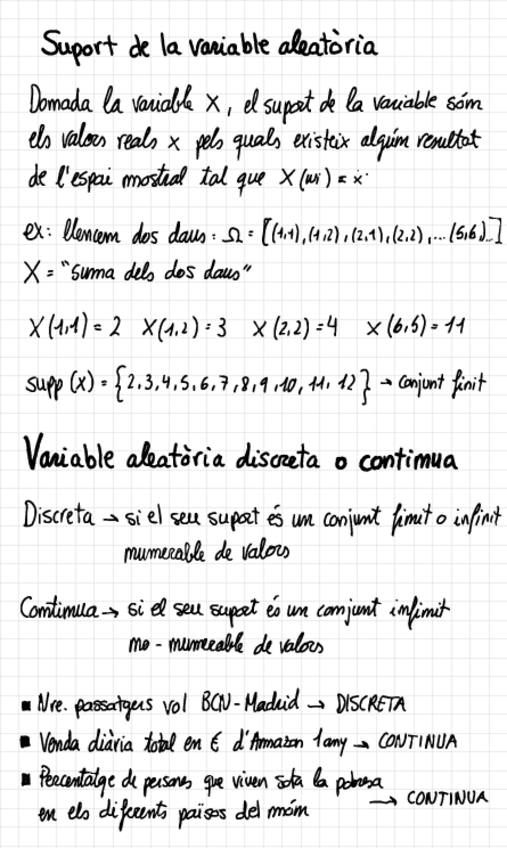 Suport de la variable aleatòria
Donada la variable X, el suport de la variable són
els valors reals x pels quals existeix algún resultat
de l'espai mostral tal que X(wi) = x
ex: llencem dos daus: Ω = [(1,1),(1,2),(2,1),(2,2),...(5,6)...]
X = "suma dels dos daus"
X(1,1) = 2 X(1,2) = 3 X(2,2) = 4 X(6,5) = 11
supp(x) = {2,3,4,5,6,7,8,9,10,11,12} → conjunt finit
Variable aleatòria discreta o continua
Discreta → si el seu suport és un conjunt finit o infinit
numerable de valors
Continua → si el seu suport és un conjunt infinit
no-numerable de valors
▪ Nre. passatgers vol BCN-Madrid → DISCRETA
▪ Venda diària total en € d'Amazon 1any → CONTINUA
▪ Percentatge de persones que viven sota la pobresa
en els diferents països del món → CONTINUA